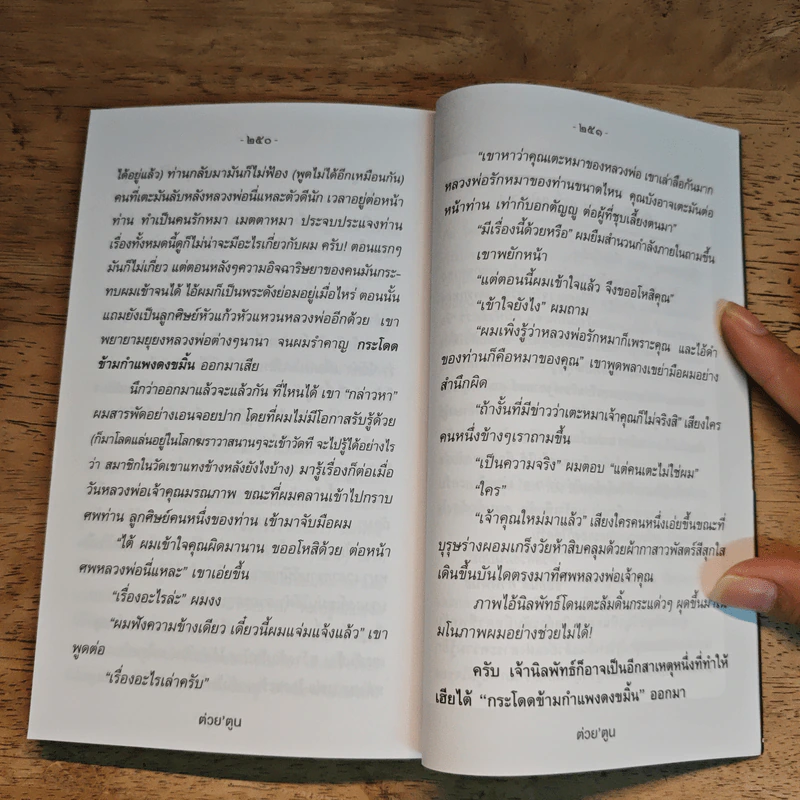 - ๒๕๐ -
ได้อยู่แล้ว) ท่านกลับมามันก็ไม่ฟ้อง (พูดไม่ได้อีกเหมือนกัน)
คนที่เตะมันลับหลังหลวงพ่อนี่แหละตัวดีนัก เวลาอยู่ต่อหน้า
ท่าน ทำเป็นคนรักหมา เมตตาหมา ประจบประแจงท่าน
เรื่องทั้งหมดนี้ดูก็ไม่น่าจะมีอะไรเกี่ยวกับผม ครับ! ตอนแรกๆ
มันก็ไม่เกี่ยว แต่ตอนหลังๆความอิจฉาริษยาของคนมันกระ-
ทบผมเข้าจนได้ ไอ้ผมก็เป็นพระดังย่อมอยู่เมื่อไหร่ ตอนนั้น
แถมยังเป็นลูกศิษย์หัวแก้วหัวแหวนหลวงพ่ออีกด้วย เขา
พยายามยุยงหลวงพ่อต่างๆนานา จนผมรำคาญ กระโดด
ข้ามกำแพงดงขมิ้น ออกมาเสีย
นึกว่าออกมาแล้วจะแล้วกัน ที่ไหนได้ เขา “กล่าวหา”
ผมสารพัดอย่างเอนจอยปาก โดยที่ผมไม่มีโอกาสรับรู้ด้วย
(ก็มาโลดแล่นอยู่ในโลกฆราวาสนานๆจะเข้าวัดที จะไปรู้ได้อย่างไร
ว่า สมาชิกในวัดเขาแทงข้างหลังยังไงบ้าง) มารู้เรื่องก็ต่อเมื่อ
วันหลวงพ่อเจ้าคุณมรณภาพ ขณะที่ผมคลานเข้าไปกราบ
ศพท่าน ลูกศิษย์คนหนึ่งของท่าน เข้ามาจับมือผม
“ไต้ ผมเข้าใจคุณผิดมานาน ขออโหสิด้วย ต่อหน้า
ศพหลวงพ่อนี่แหละ” เขาเอ่ยขึ้น
“เรื่องอะไรล่ะ” ผมงง
“ผมฟังความข้างเดียว เดี๋ยวนี้ผมแจ่มแจ้งแล้ว” เขา
พูดต่อ
“เรื่องอะไรเล่าครับ”
ต่วย'ตูน
- ๒๕๑ -
“เขาหาว่าคุณเตะหมาของหลวงพ่อ เขาเล่าลือกันมาก
หลวงพ่อรักหมาของท่านขนาดไหน คุณบังอาจเตะมันต่อ
หน้าท่าน เท่ากับอกตัญญู ต่อผู้ที่ชุบเลี้ยงตนมา”
“มีเรื่องนี้ด้วยหรือ” ผมยืมสำนวนกำลังภายในถามขึ้น
เขาพยักหน้า
“แต่ตอนนี้ผมเข้าใจแล้ว จึงขออโหสิคุณ”
“เข้าใจยังไง” ผมถาม
“ผมเพิ่งรู้ว่าหลวงพ่อรักหมาก็เพราะคุณ และไอ้ดำ
ของท่านก็คือหมาของคุณ” เขาพูดพลางเขย่ามือผมอย่าง
สำนึกผิด
“ถ้างั้นที่มีข่าวว่าเตะหมาเจ้าคุณก็ไม่จริงสิ” เสียงใคร
คนหนึ่งข้างๆเราถามขึ้น
“เป็นความจริง” ผมตอบ “แต่คนเตะไม่ใช่ผม”
“ใคร”
“เจ้าคุณใหม่มาแล้ว” เสียงใครคนหนึ่งเอ่ยขึ้นขณะที่
บุรุษร่างผอมเกร็งวัยห้าสิบคลุมด้วยผ้ากาสาวพัสตร์สีสุกใส
เดินขึ้นบันไดตรงมาที่ศพหลวงพ่อเจ้าคุณ
ภาพไอ้นิลพัทธ์โดนเตะล้มดิ้นกระแด่วๆ ผุดขึ้นมาใน
มโนภาพผมอย่างช่วยไม่ได้!
ครับ เจ้านิลพัทธ์ก็อาจเป็นอีกสาเหตุหนึ่งที่ทำให้
เฮียไต้ “กระโดดข้ามกำแพงดงขมิ้น” ออกมา
ต่วย'ตูน